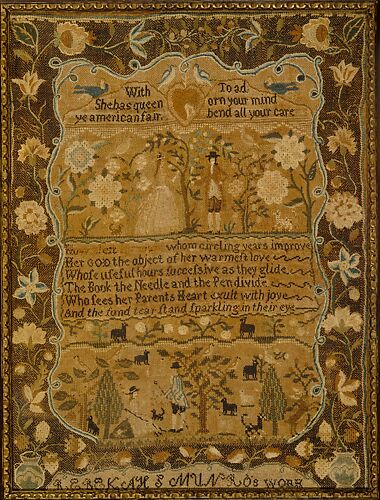 With To ad
Shebas queen orn your mind
ye american fair. bend all your care
whom circling years improve
Her GOD the object of her warmest love
Whose useful hours successive as they glide
The Book the Needle and the Pen divide
Who sees her Parents Heart exult with joye
And the fond tear stand sparkling in their eye
REBEKAH S MUNROs WORK